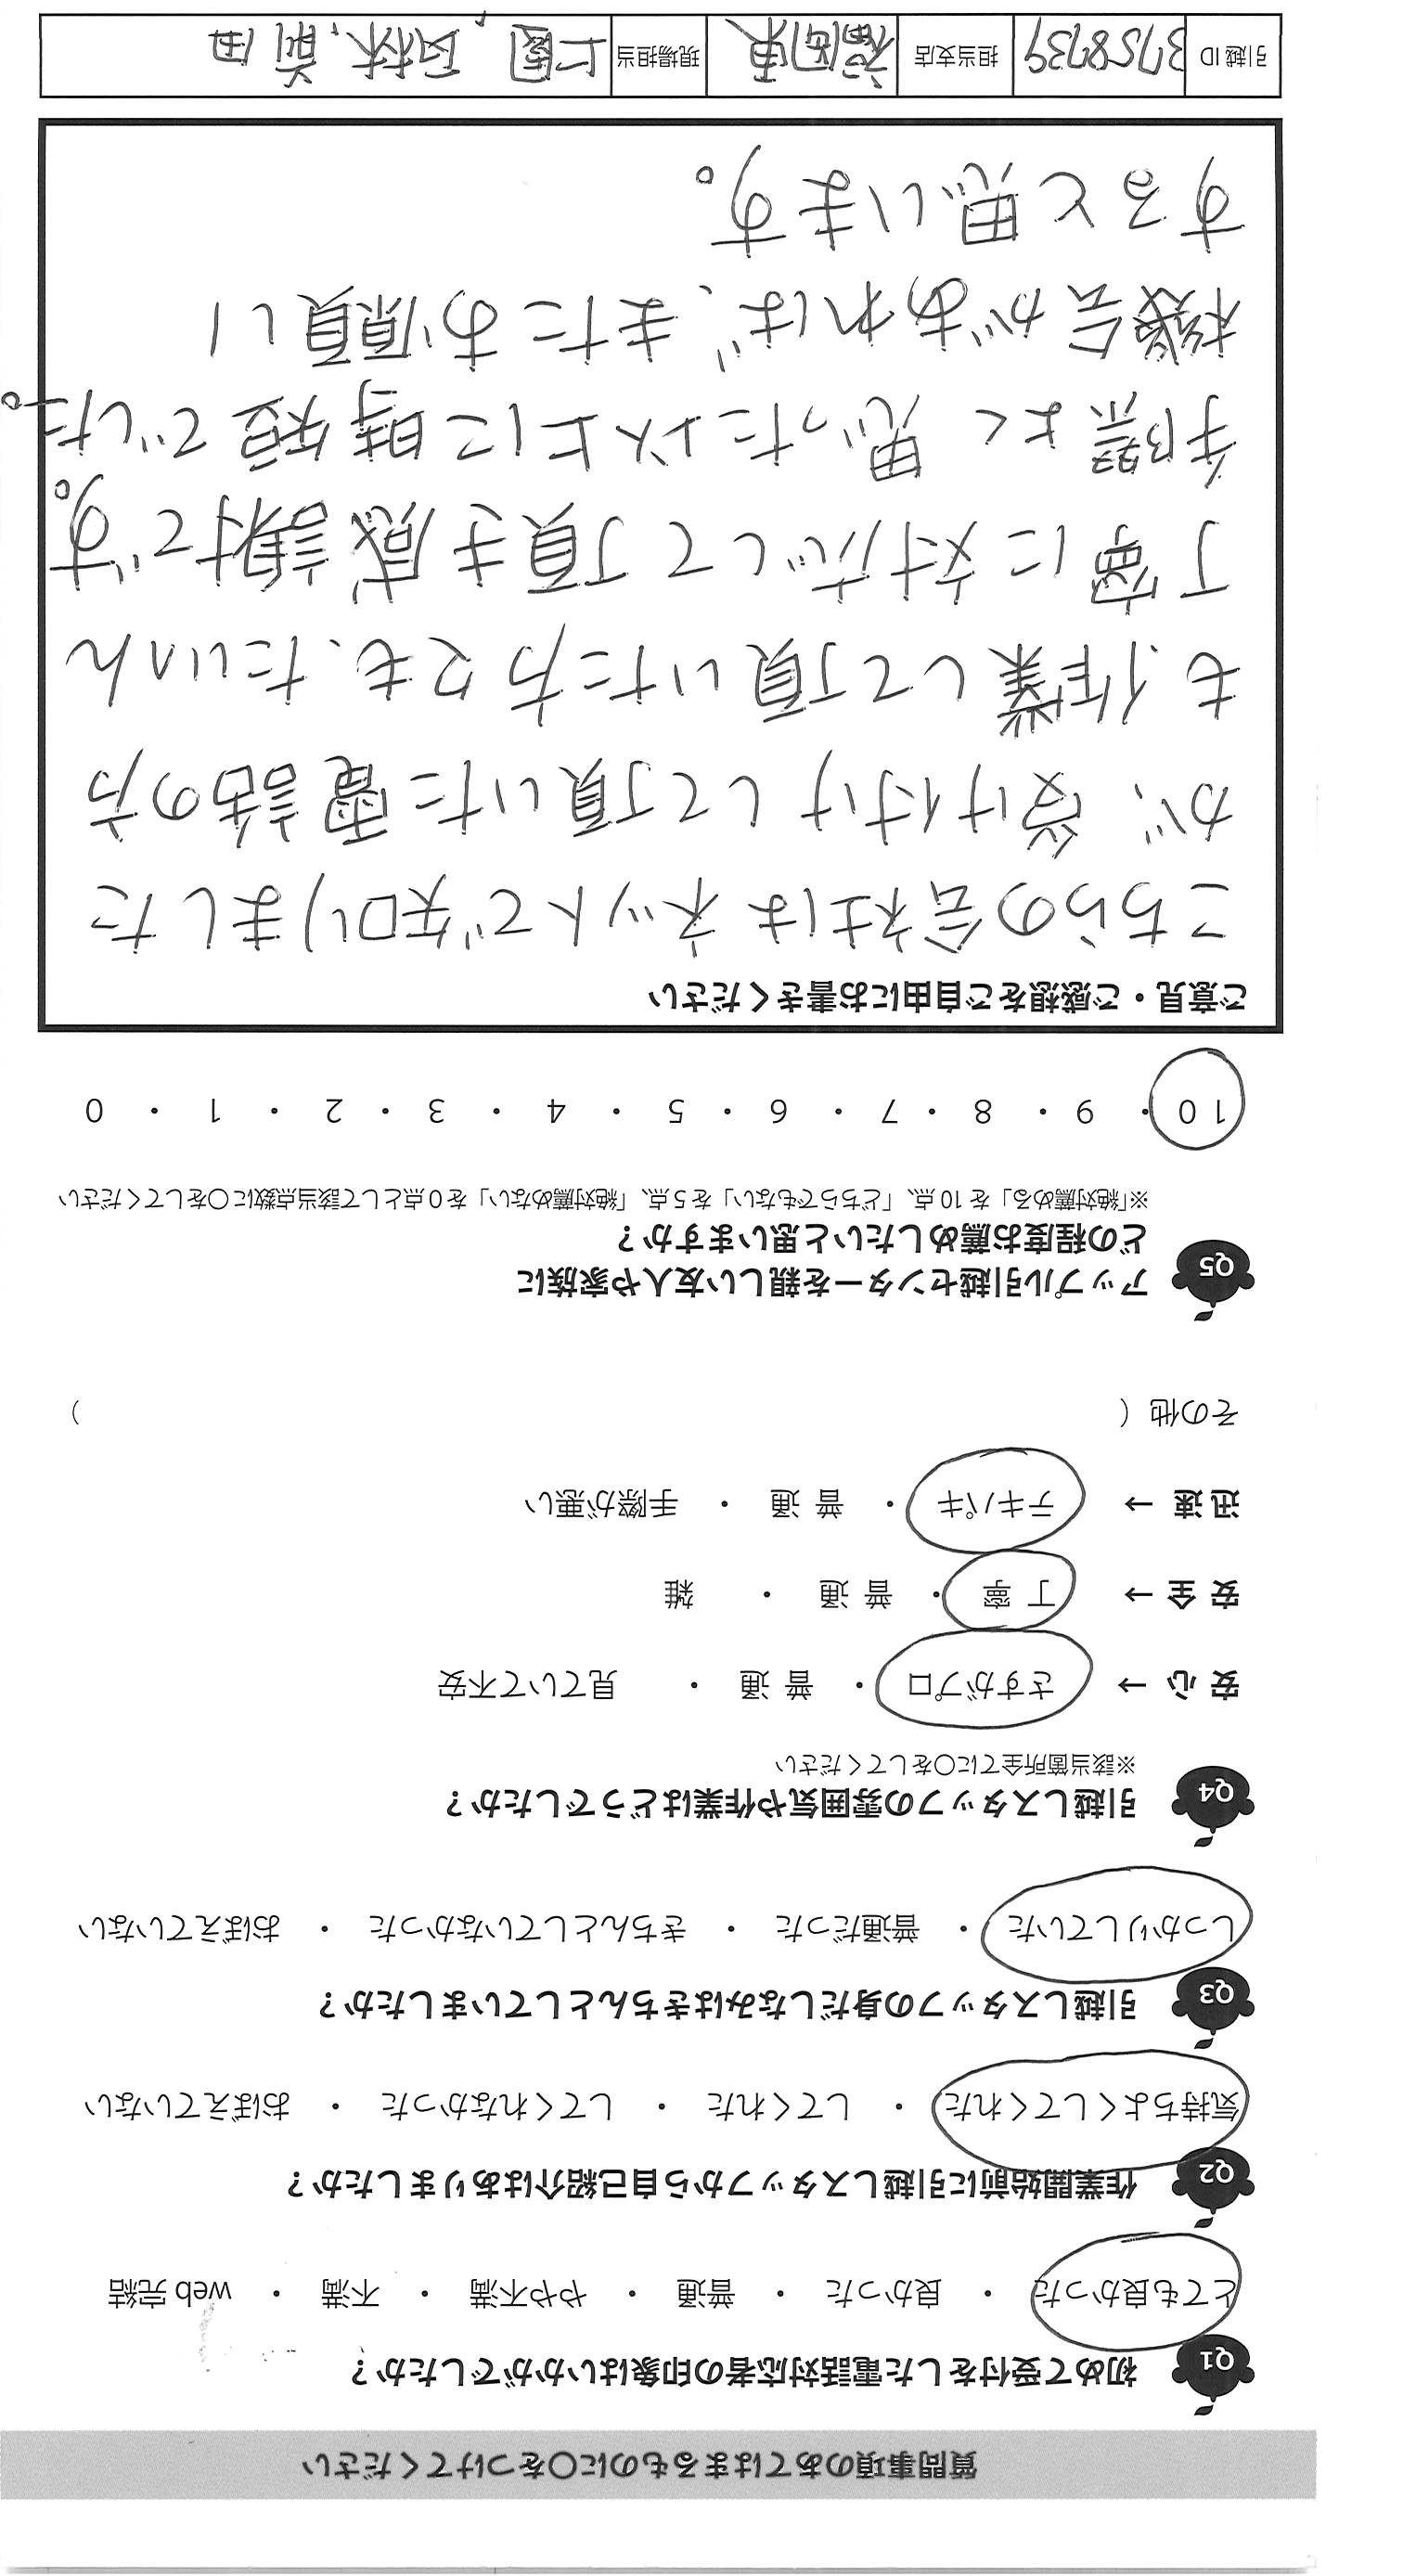 質問事項のあてはまるものに○をつけてください
Q1 初めて受付をした電話対応者の印象はいかがでしたか？
とても良かった ・ 良かった ・ 普通 ・ やや不満 ・ 不満 ・ web 完結
Q2 作業開始前に引越しスタッフから自己紹介はありましたか？
気持ちよくしてくれた ・ してくれた ・ してくれなかった ・ おぼえていない
Q3 引越しスタッフの身だしなみはきちんとしていましたか？
しっかりしていた ・ 普通だった ・ きちんとしていなかった ・ おぼえていない
Q4 引越しスタッフの雰囲気や作業はどうでしたか？
※該当箇所全てに○をしてください
安 心 → さすがプロ ・ 普 通 ・ 見ていて不安
安 全 → 丁 寧 ・ 普 通 ・ 雑
迅 速 → テキパキ ・ 普 通 ・ 手際が悪い
その他（ ）
Q5 アップル引越センターを親しい友人や家族に
どの程度お薦めしたいと思いますか？
※「絶対薦める」を 10 点、「どちらでもない」を 5 点、「絶対薦めない」を 0 点として該当点数に○をしてください
10 ・ 9 ・ 8 ・ 7 ・ 6 ・ 5 ・ 4 ・ 3 ・ 2 ・ 1 ・ 0
ご意見・ご感想をご自由にお書きください
こちらの会社はネットで知りました
が、受け付けして頂いた電話の方
も、作業して頂いた方々も、たいへん
丁寧に対応して頂き感謝です。
手際よく 思った以上に時短でした。
機会があれば、またお願い
すると思います。
引越 ID 3758739 担当支店 福岡東 現場担当 上園、西林、前田